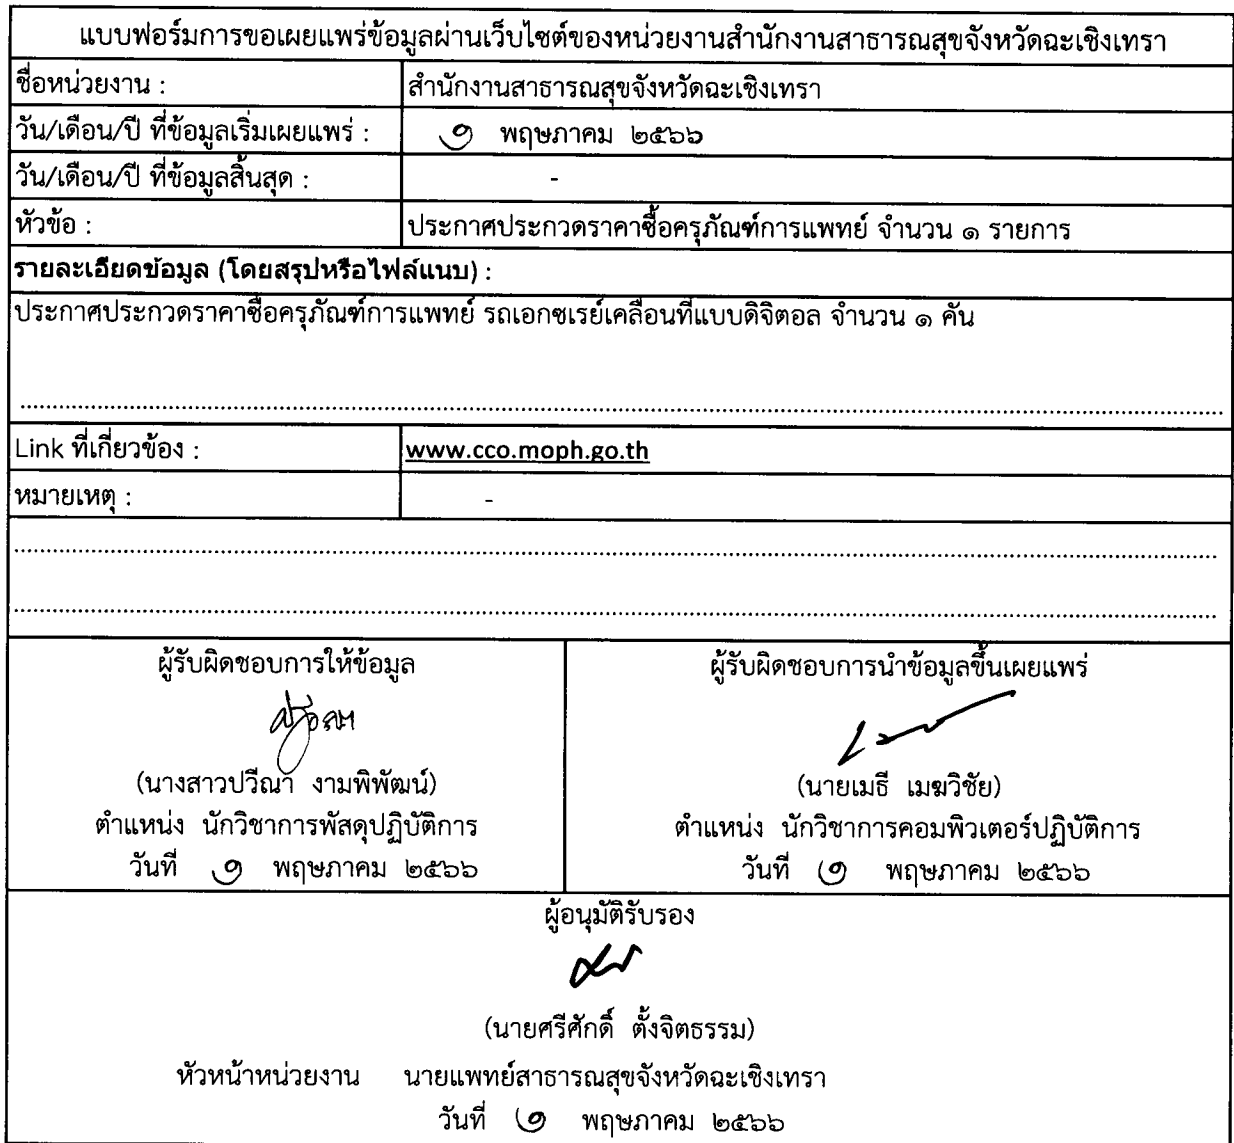 แบบฟอร์มการขอเผยแพร่ข้อมูลผ่านเว็บไซต์ของหน่วยงานสำนักงานสาธารณสุขจังหวัดฉะเชิงเทรา
ชื่อหน่วยงาน : สำนักงานสาธารณสุขจังหวัดฉะเชิงเทรา
วัน/เดือน/ปี ที่ข้อมูลเริ่มเผยแพร่ : พฤษภาคม ๒๕๖๖
วัน/เดือน/ปี ที่ข้อมูลสิ้นสุด : -
หัวข้อ : ประกาศประกวดราคาซื้อครุภัณฑ์การแพทย์ จำนวน ๑ รายการ
รายละเอียดข้อมูล (โดยสรุปหรือไฟล์แนบ) :
ประกาศประกวดราคาซื้อครุภัณฑ์การแพทย์ รถเอกซเรย์เคลื่อนที่แบบดิจิตอล จำนวน ๑ คัน
Link ที่เกี่ยวข้อง : www.cco.moph.go.th
หมายเหตุ : -
ผู้รับผิดชอบการให้ข้อมูล ผู้รับผิดชอบการนำข้อมูลขึ้นเผยแพร่
(นางสาวปวีณา งามพิพัฒน์) (นายเมธี เมฆวิชัย)
ตำแหน่ง นักวิชาการพัสดุปฏิบัติการ ตำแหน่ง นักวิชาการคอมพิวเตอร์ปฏิบัติการ
วันที่ พฤษภาคม ๒๕๖๖ วันที่ พฤษภาคม ๒๕๖๖
ผู้อนุมัติรับรอง
(นายศรีศักดิ์ ตั้งจิตธรรม)
หัวหน้าหน่วยงาน นายแพทย์สาธารณสุขจังหวัดฉะเชิงเทรา
วันที่ พฤษภาคม ๒๕๖๖